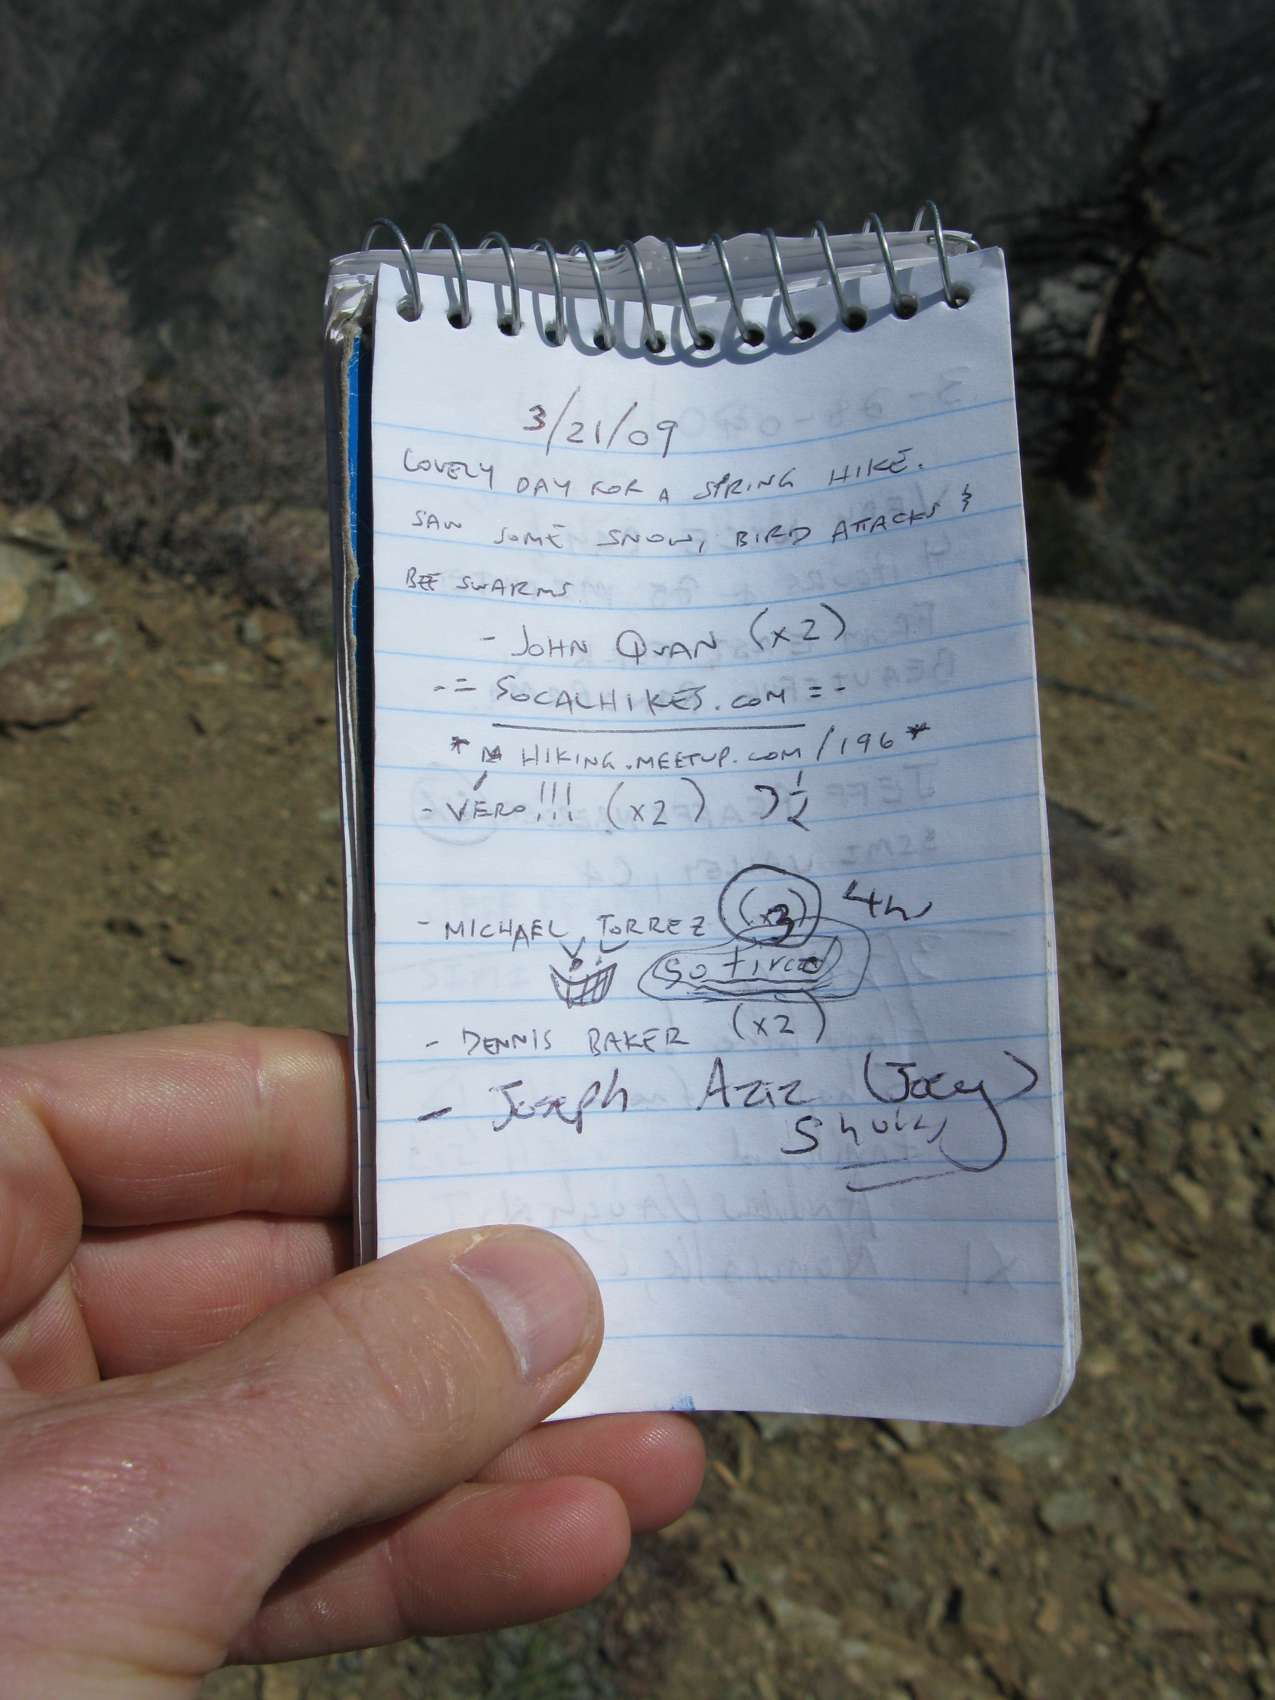 3/21/09
LOVELY DAY FOR A SPRING HIKE.
SAW SOME SNOW, BIRD ATTACKS &
BEE SWARMS.
- JOHN QUAN (x2)
-= SOCALHIKES.COM =-
* HIKING.MEETUP.COM/196 *
- VÉRO!!! (x2)
- MICHAEL TORREZ (x3)
So tired
- DENNIS BAKER (x2)
- Joseph Aziz (Joey)